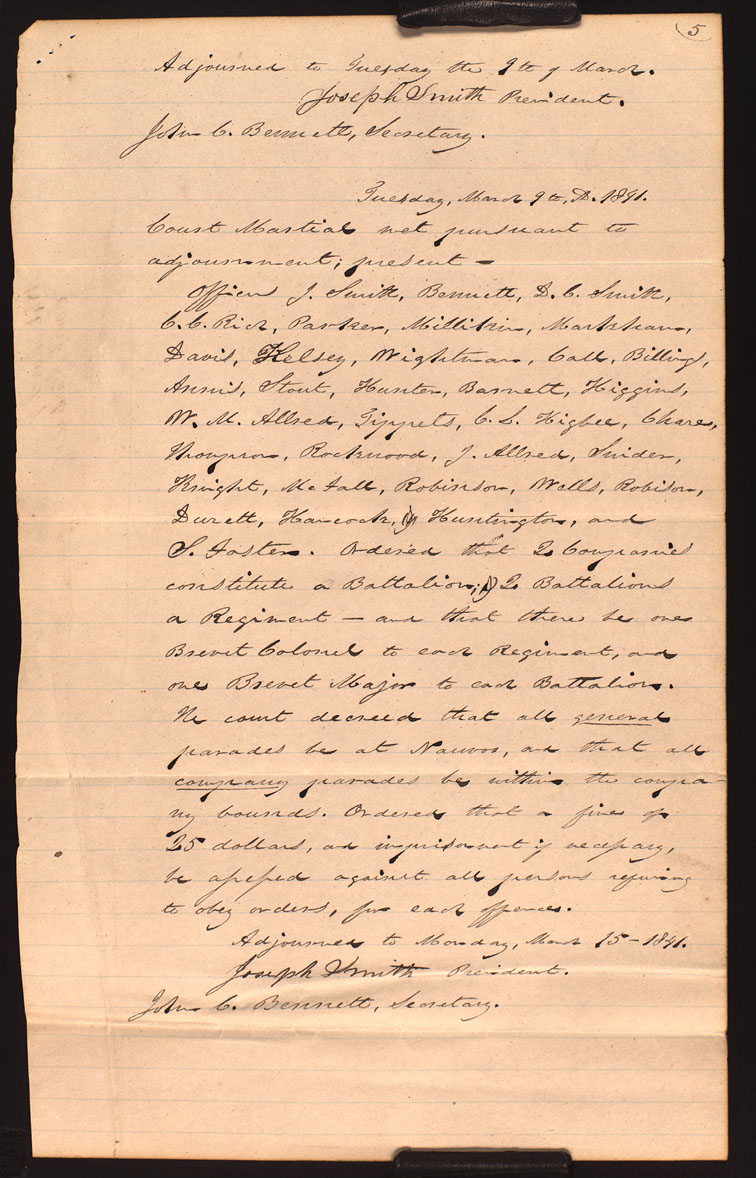 5
Adjourned to Tuesday the 9th of March.
Joseph Smith President.
John C. Bennett, Secretary.
Tuesday, March 9th, A. D. 1841.
Court Martial met pursuant to
adjournment; present –
Officers J. Smith, Bennett, D. C. Smith,
C. C. Rich, Parker, Millikin, Markham,
Davis, Kelsey, Wightman, Call, Billings,
Annis, Stout, Hunter, Barnett, Higgins,
W. M. Allred, Tippets, C. L. Higbee, Chase,
Thompson, Rockwood, J. Allred, Snider,
Knight, McFall, Robinson, Wells, Robison,
Durett, Hancock, Huntington, and
S. Foster. Ordered that 2 Companies
constitute a Battalion; 2 Battalions
a Regiment – and that there be one
Brevet Colonel to each Regiment, and
one Brevet Major to each Battalion.
The court decreed that all general
parades be at Nauvoo, and that all
company parades be within the compa-
ny bounds. Ordered that a fine of
25 dollars, and imprisonment if necessary,
be assessed against all persons refusing
to obey orders, for each offence.
Adjourned to Monday, March 15 – 1841.
Joseph Smith President.
John C. Bennett, Secretary.